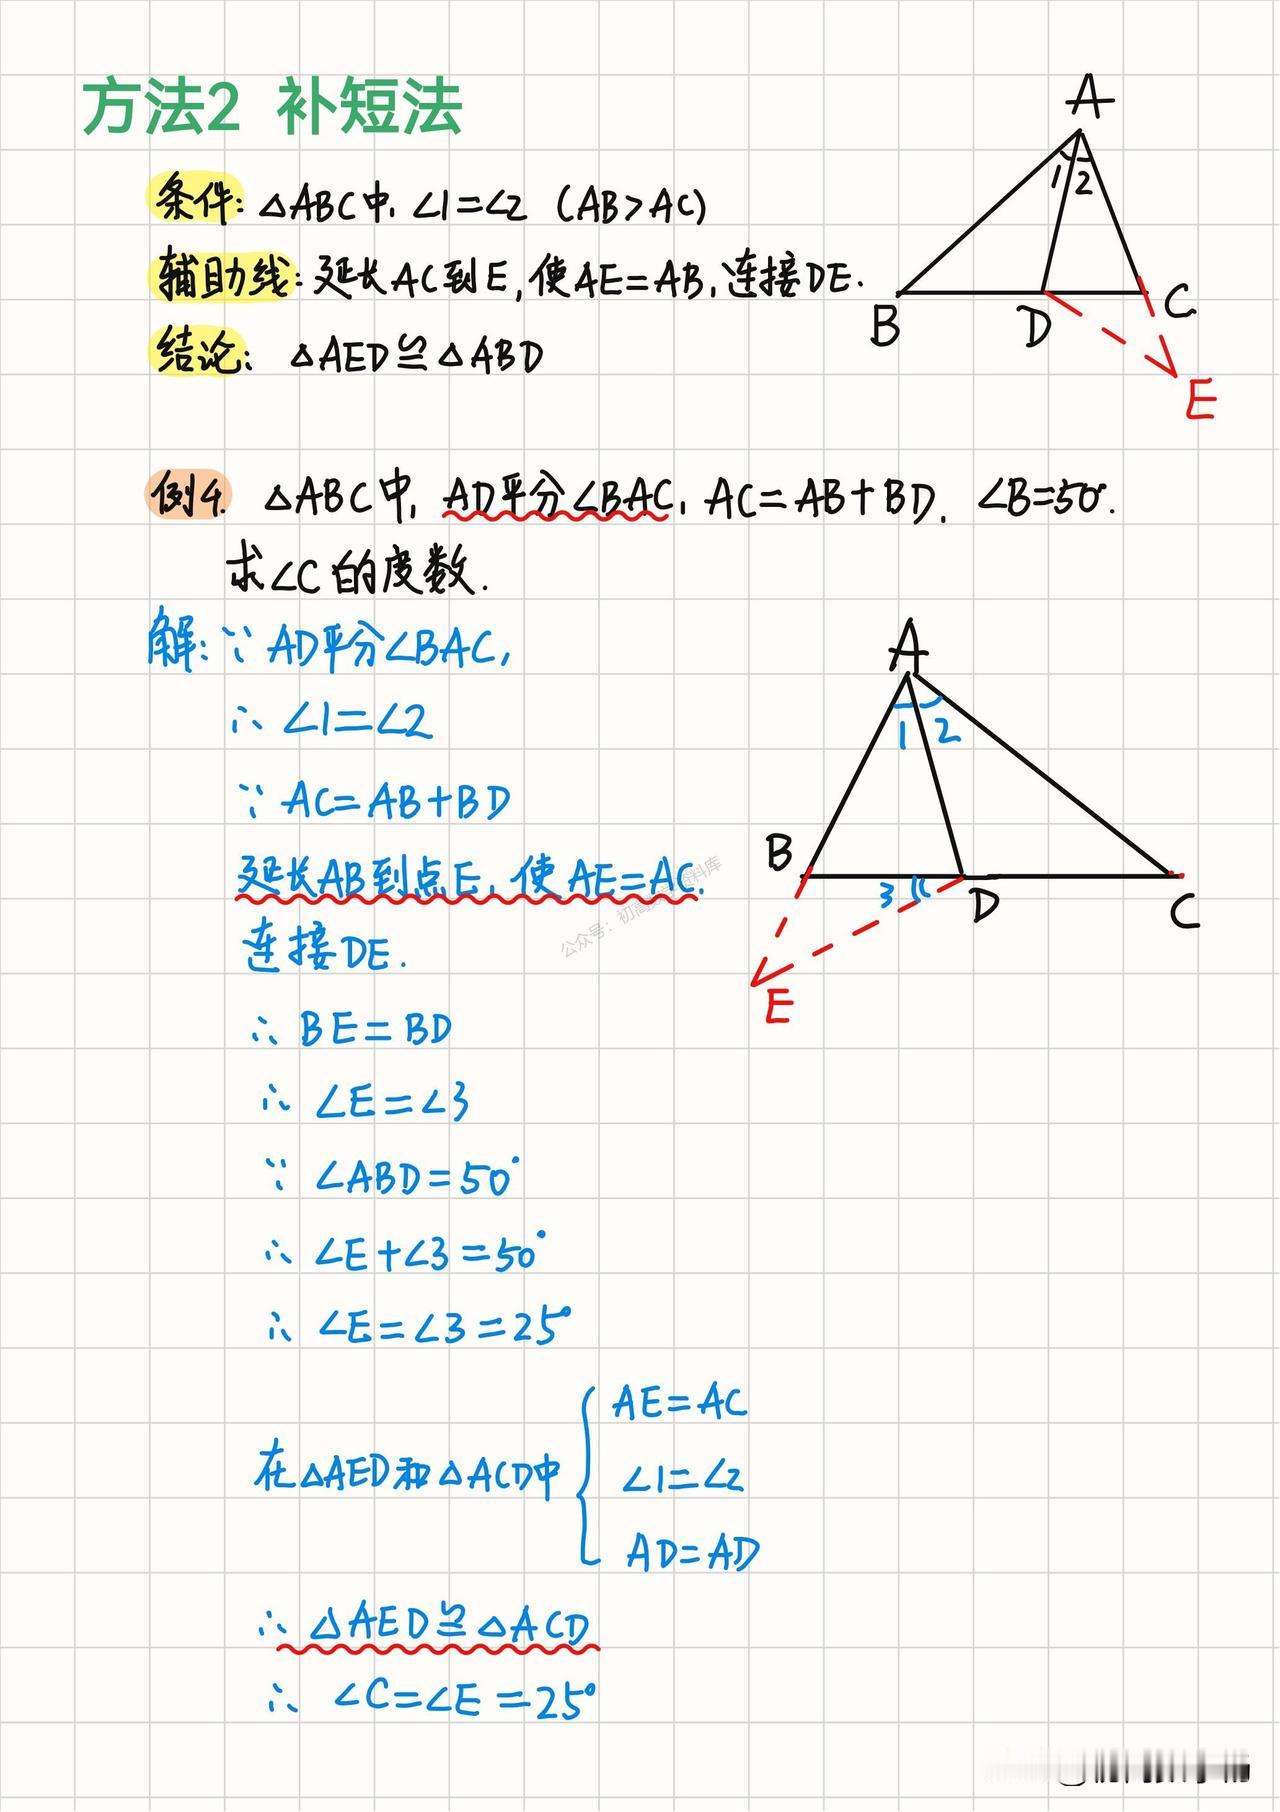 方法2 补短法
条件: △ABC中, ∠1=∠2 (AB>AC)
辅助线: 延长AC到E, 使AE=AB, 连接DE.
结论: △AED≌△ABD
A
1 2
B
D
C
E
例4. △ABC中, AD平分∠BAC, AC=AB+BD, ∠B=50°.
求∠C的度数.
解: ∵ AD平分∠BAC,
∴ ∠1=∠2
∵ AC=AB+BD
延长AB到点E, 使AE=AC.
连接DE.
∴ BE=BD
∴ ∠E=∠3
∵ ∠ABD=50°
∴ ∠E+∠3=50°
∴ ∠E=∠3=25°
在△AED和△ACD中
AE=AC
∠1=∠2
AD=AD
∴ △AED≌△ACD
∴ ∠C=∠E=25°
A
1 2
B
3
D
C
E
公众号: 初高 料库